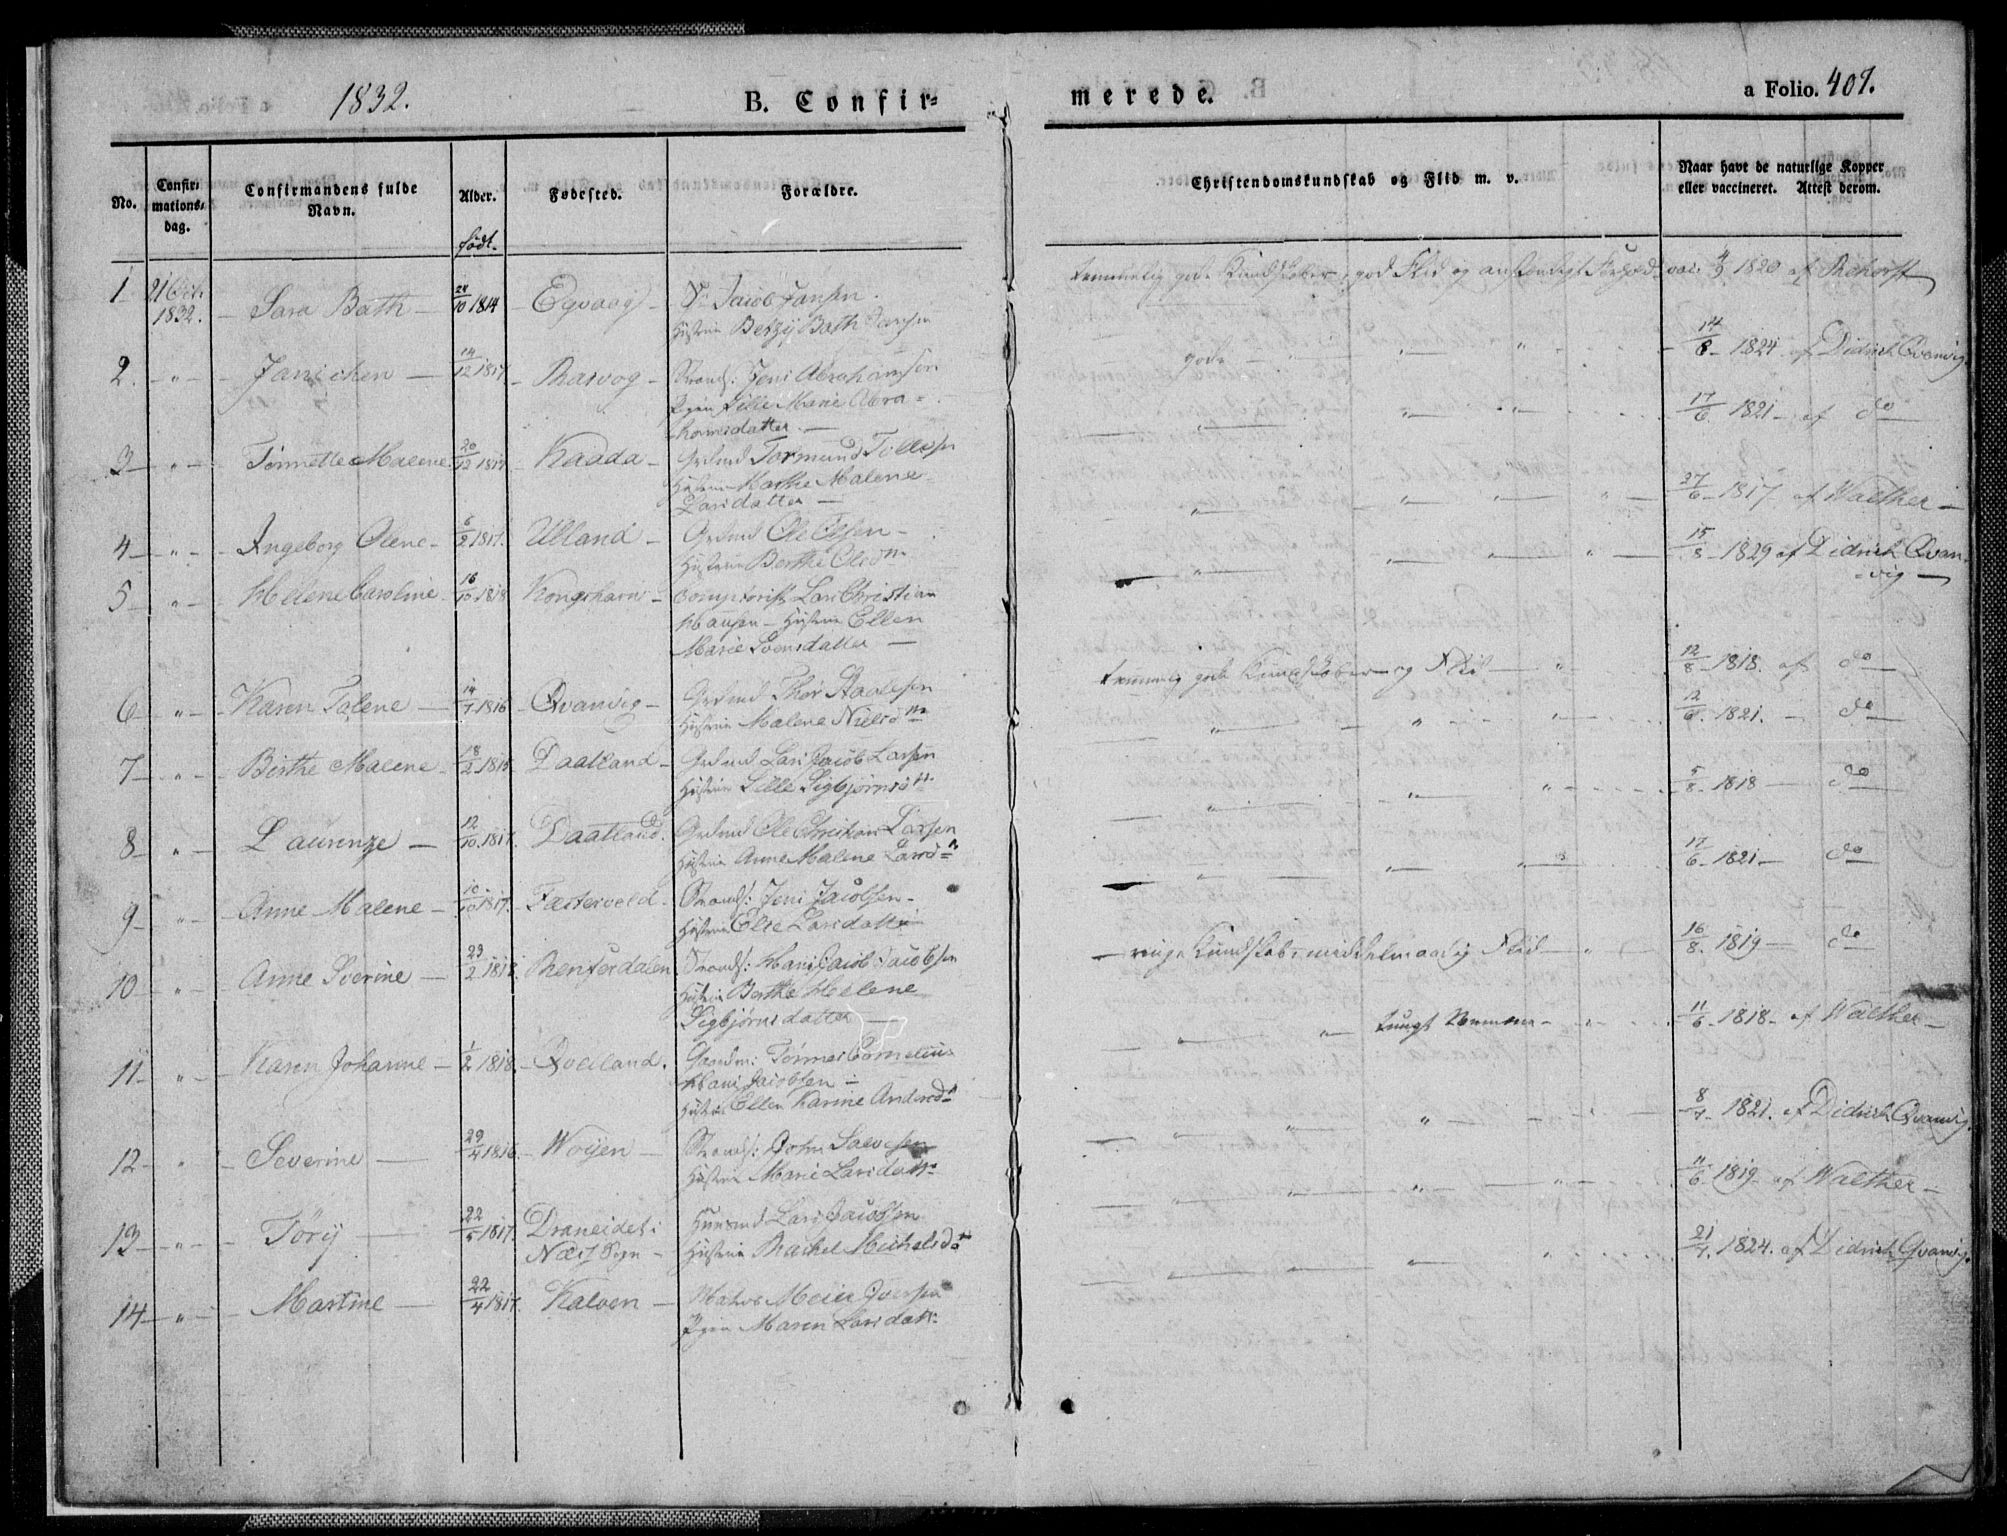 1832.
B. Confir=
merede.
a Folio. 407.
No.
Confir=
mations=
dag.
Confirmandens fulde
Navn.
Alder.
födt.
Fødested.
Forældre.
Christendomskundskab og Flid m. v.
Naar havt de naturlige Kopper
eller vaccineret. Attest derom.
1 21 Oct. 1832. Sara Bath 24/10 1814 Egvaag Jacob Jansen.
Hustrue Betzy Bath Jansen
temmelig gode Kundskaber, god Flid og anstændigt Forhold vac. 4/9 1820 af Rehorst
2. " Janichen 14/12 1817 Rasvog Strands: Jens Abrahamsen
Pigen Sille Marie Abra=
hamsdatter.
gode " " " 14/8 1824 af Didrich Qvanvig.
3 " Tönnette Malene 20/12 1817 Kaada Grdmd Tormund Tollesen
Hustrue Marthe Malene
Larsdatter
" " " 17/6 1821 af do
4 " Ingeborg Olene 6/2 1817. Ulland Grdmd Ole Olsen
Hustrue Berthe Olsdtr
" " " " 27/6 1817 af Walther
5 " Helene Caroline 16/10 1818 Kongshavn Lars Christian
Hansen Hustrue Ellen
Marie Svensdatter
" " " " 15/8 1829 af Didrich Qvan=
vig
6 " Karen Talene 14/7 1816 Qvanvig Grdmd Thor Staalesen
Hustrue Malene Nielsdtr
temmelig gode Kundskaber og Flid " 12/8 1818. af do
7 " Birthe Malene 18/2 1815 Daatland Grdmd Lars Jacob Larsen
Hustrue Sille Sigbjörnsdtr
" " " " 12/6. 1821. do
8 " Laurenze 12/10. 1817. Daatland. Grdmd Ole Christian Larsen
Hustrue Anne Malene Larsdtr
" " " 5/8 1818 do
9 " Anne Malene 10/10 1817. Fæstervold Strands: Jens Jacobsen
Hustrue Else Larsdatter
" " " 17/6 1821 do
10 " Anne Severine 23/2 1818 Strands: Hans Jacob Jacobsen
Hustrue Berthe Helene
Sigbjörnsdatter
ringe Kundskab, middelmaadig Flid " 16/8. 1819 do
11 " Karen Johanne 1/2 1818. Grdmd: Tönnes Cornelius
Hans Jacobsen
Hustrue Ellen Karine Andersdtr
" " tungt Nemme " 11/6 1818 af Walther
12 " Severine 29/4 1816. Woijen Strands: John Salvesen
Hustrue Marie Larsdattr
" " " 8/7 1821. af Didrich Qvanvig.
13 " Töry 22/5 1817. Draneidet i
Næs Sogn
Huusmd Lars Jacobsen
Hustrue Rachel Michelsdtr
" " " " 11/6 1819 af Walther
14 " Martine 22/4 1817. Kalven Matros Meier Iversen
Pigen Maren Larsdattr
" " " " 21/7. 1824. af Didrich Qvanvig.